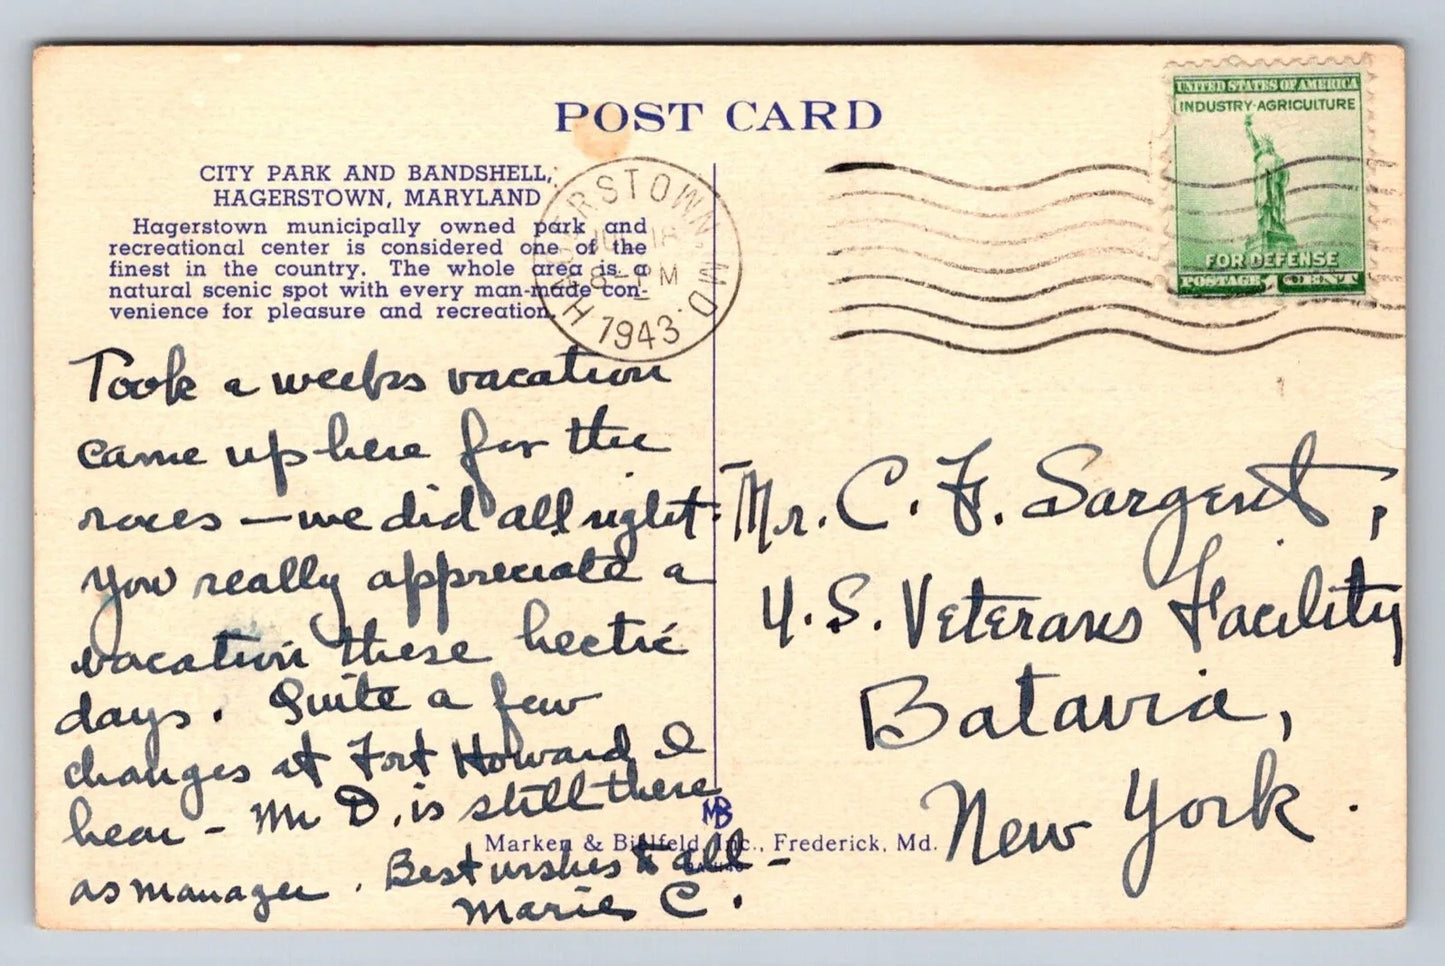 POST CARD
CITY PARK AND BANDSHELL,
HAGERSTOWN, MARYLAND
Hagerstown municipally owned park and
recreational center is considered one of the
finest in the country. The whole area is a
natural scenic spot with every man-made con-
venience for pleasure and recreation.
HAGERSTOWN, MD.
JUL 18
8 PM
1943
UNITED STATES OF AMERICA
INDUSTRY·AGRICULTURE
FOR DEFENSE
POSTAGE 1 CENT
Took a weeks vacation
came up here for the
races — we did all right.
You really appreciate a
vacation these hectic
days. Quite a few
changes at Fort Howard I
hear - Mr D. is still there
as manager. Best wishes to all -
Marie C.
Mr. C. F. Sargent,
U.S. Veterans Facility
Batavia,
New York.
MB
Marken & Bielfeld, Inc., Frederick, Md.